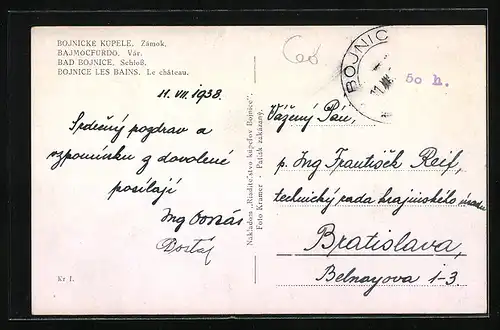 BOJNICKÉ KÚPELE. Zámok.
BAJMÓCFÜRDÖ. Vár.
BAD BOJNICE. Schloß.
BOJNICE LES BAINS. Le château.
11. VII. 1938.
Srdečný pozdrav a
vzpomínku z dovolené
posílají
Ing
Kr I.
Nakladom „Riaditeľstvo kúpeľov Bojnice".
Foto Kramer - Patisk zakázaný.
BOJNIC
50 h.
Vážený Pán,
p. Ing František Reif,
technický rada krajinského úradu
Bratislava,
Belnayova 1-3.